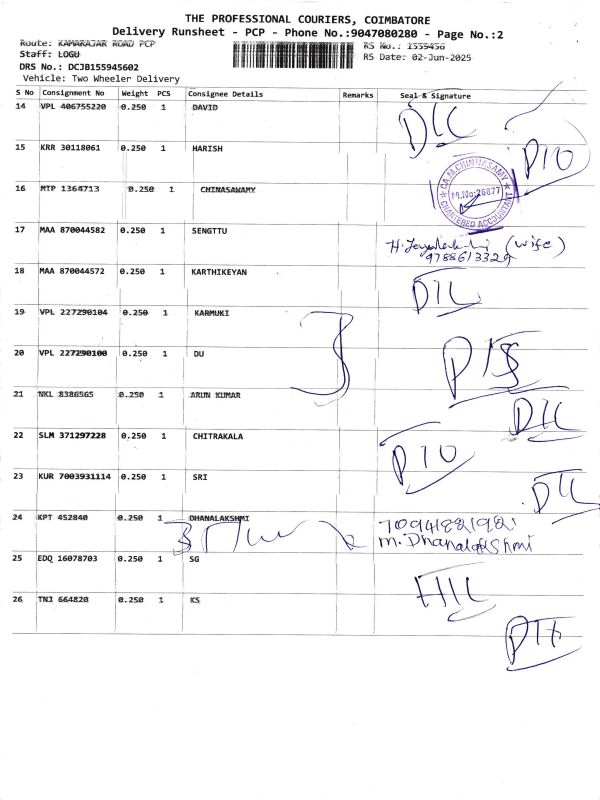 THE PROFESSIONAL COURIERS, COIMBATORE
Delivery Runsheet - PCP - Phone No.:9047080280 - Page No.:2
Route: KAMARAJAR ROAD PCP
RS No.: 1559456
Staff: LOGU
RS Date: 02-Jun-2025
DRS No.: DCJB155945602
Vehicle: Two Wheeler Delivery
S No Consignment No Weight PCS Consignee Details Remarks Seal & Signature
14 VPL 406755220 0.250 1 DAVID DIL
15 KRR 30118061 0.250 1 HARISH PIO
16 MTP 1364713 0.250 1 CHINASAWAMY CA.M.CHINNASAMY M.No:26877 CHARTERED ACCOUNTANT
17 MAA 870044582 0.250 1 SENGTTU H. (wife)
9788613329
18 MAA 870044572 0.250 1 KARTHIKEYAN DIL
19 VPL 227290104 0.250 1 KARMUKI
20 VPL 227290100 0.250 1 DU
21 NKL 8386565 0.250 1 ARUN KUMAR DIL
22 SLM 371297228 0.250 1 CHITRAKALA PIO
23 KUR 7003931114 0.250 1 SRI DIL
24 KPT 452840 0.250 1 DHANALAKSHMI 7094182192
m. Dhanalakshmi
25 EDQ 16078703 0.250 1 SG
26 TNJ 664820 0.250 1 KS